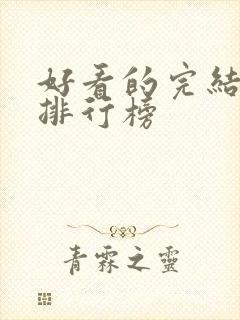 好看的完結
排行榜
青霖之靈